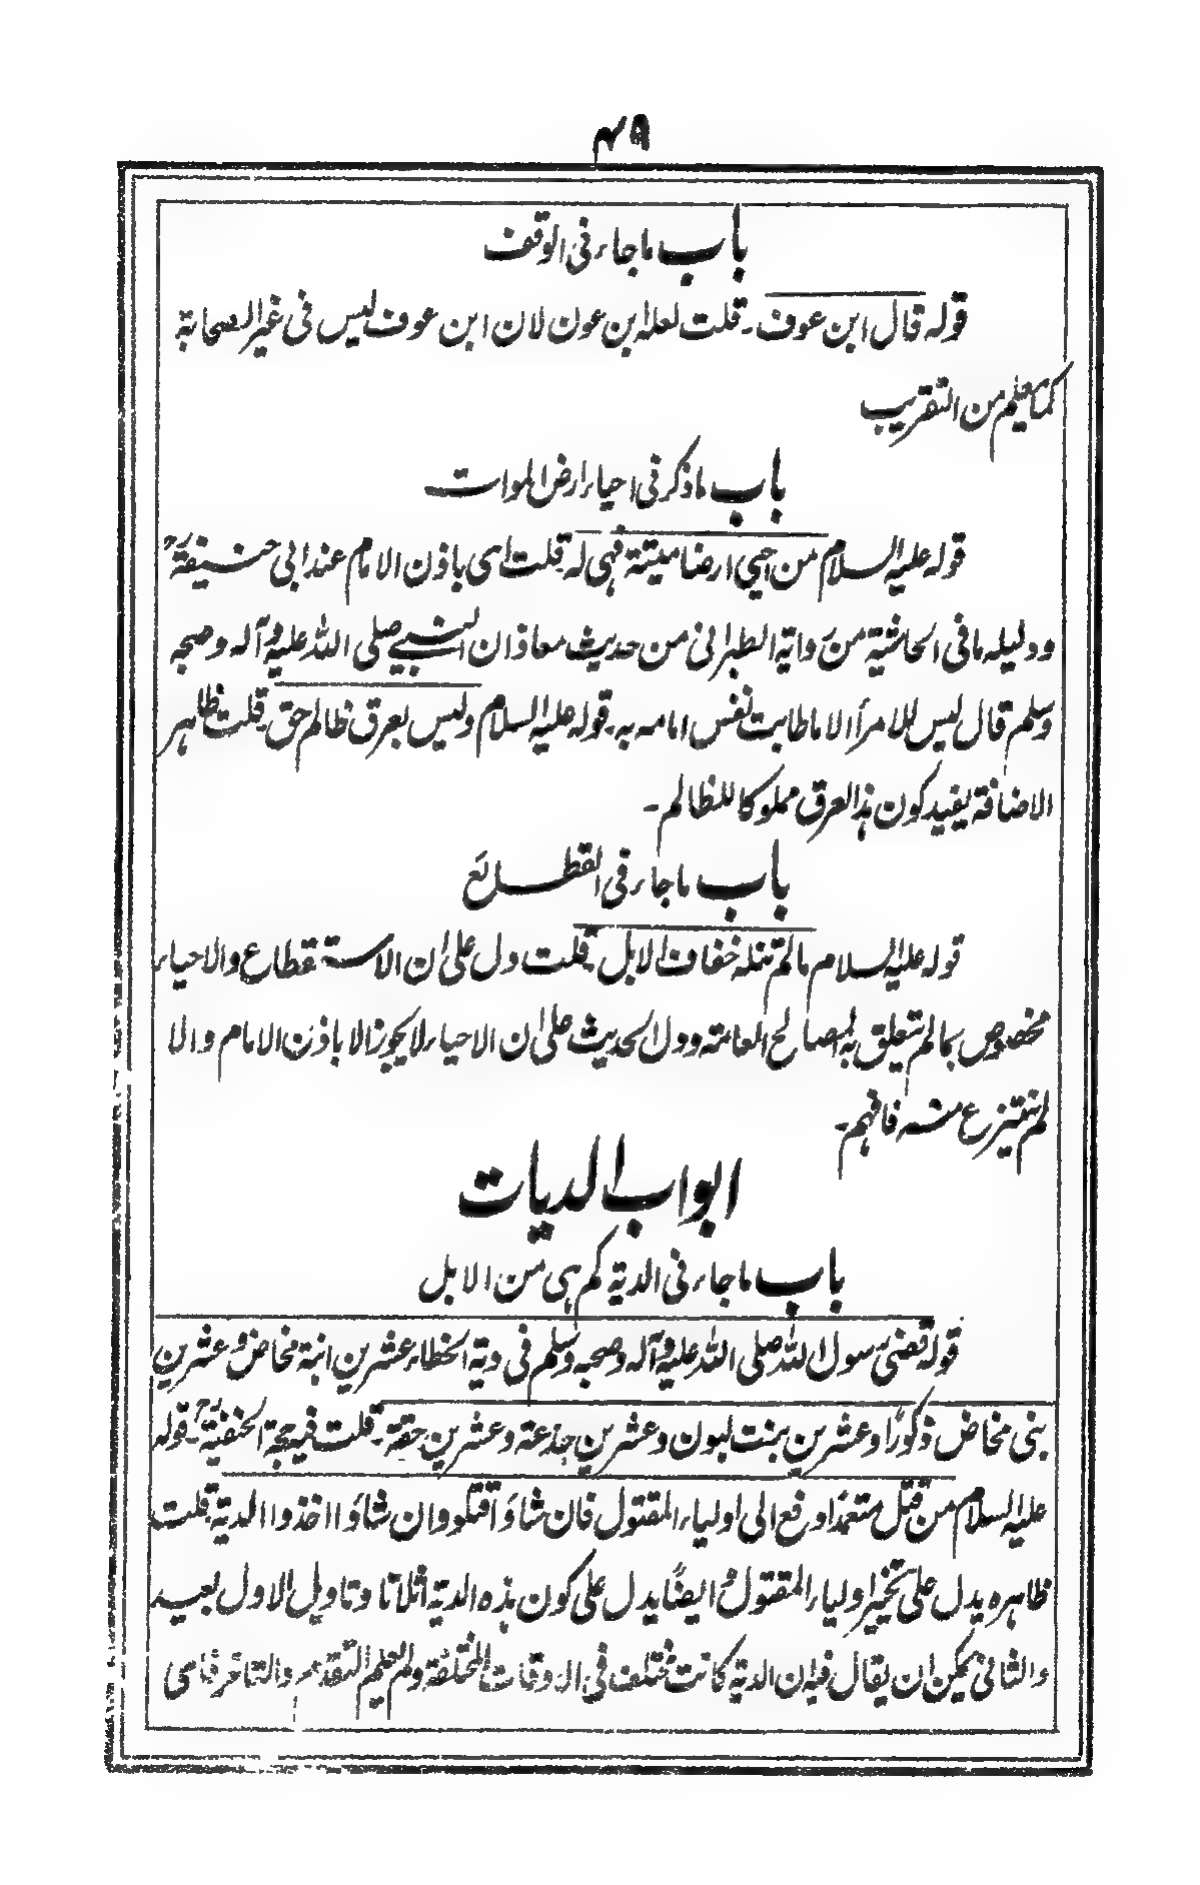 ۴۹
باب ماجاء فی الوقف
قولہ قال ابن عوف۔ قلت لعلہ ابن عون لان ابن عوف لیس فی غیر الصحابۃ
کما یعلم من التقریب
باب ماذکر فی احیاء ارض الموات
قولہ علیہ السلام من احیی ارضا میتۃ فہی لہ۔ قلت ای باذن الامام عند ابی حنیفۃؒ
ودلیلہ ما فی الحاشیۃ من روایۃ الطبرانی من حدیث معاذ ان النبی صلی اللہ علیہ وآلہ وصحبہ
وسلم قال لیس للامرأ الا ما طابت نفس امامہ بہ۔ قولہ علیہ السلام ولیس بعرق ظالم حق۔ قلت ظاہر
الاضافۃ یفید کون ہذا العرق مملوکا للظالم۔
باب ماجاء فی القطائع
قولہ علیہ السلام مالم تنلہ خفاف الابل۔ قلت دل علی ان الاستقطاع والاحیاء
مخصوص بمالم تتعلق بہ المصالح العامۃ ودل الحدیث علی ان الاحیاء لا یجوز الا باذن الامام والا
لم ینتزع منہ فافہم۔
ابواب الدیات
باب ماجاء فی الدیۃ کم ہی من الابل
قولہ قضی رسول اللہ صلی اللہ علیہ وآلہ وصحبہ وسلم فی دیۃ الخطاء عشرین ابنۃ مخاض وعشرین
بنی مخاض ذکورًا وعشرین بنت لبون وعشرین جذعۃ وعشرین حقۃ۔ قلت فیہ حجۃ الحنفیۃؒ۔ قولہ
علیہ السلام من قتل متعمدًا دفع الی اولیاء المقتول فان شاؤا قتلوا وان شاؤا اخذوا الدیۃ۔ قلت
ظاہرہ یدل علی تخییر اولیاء المقتول وایضًا یدل علی کون ہذہ الدیۃ اثلاثا وتاویل الاول بعید
والثانی یمکن ان یقال فیہ ان الدیۃ کانت تختلف فی الاوقات المختلفۃ ولم یعلم التقدیم والتاخر فای